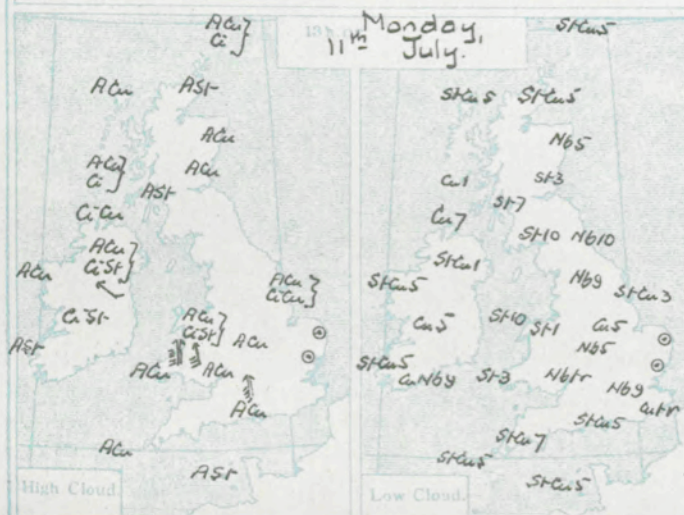 Monday,
11th July.
ACu
Ci
ACu
ASt
ACu
ACu
Ci
ACu
ASt
CiCu
ACu
CiSt
ACu
CiSt
ASt
ACu
CiCu
ACu
CiSt
ACu
ACu
ACu
ACu
ACu
ASt
High Cloud.
StCu5
StCu5
StCu5
Nb5
Cu1
St3
St7
Cu7
St10
Nb10
StCu1
Nb9
StCu5
StCu3
Cu5
St10
St1
Cu5
Nb5
StCu5
CuNb9
St3
Nbtr
Nb9
Cutr
StCu5
StCu7
StCu5
StCu5
Low Cloud.